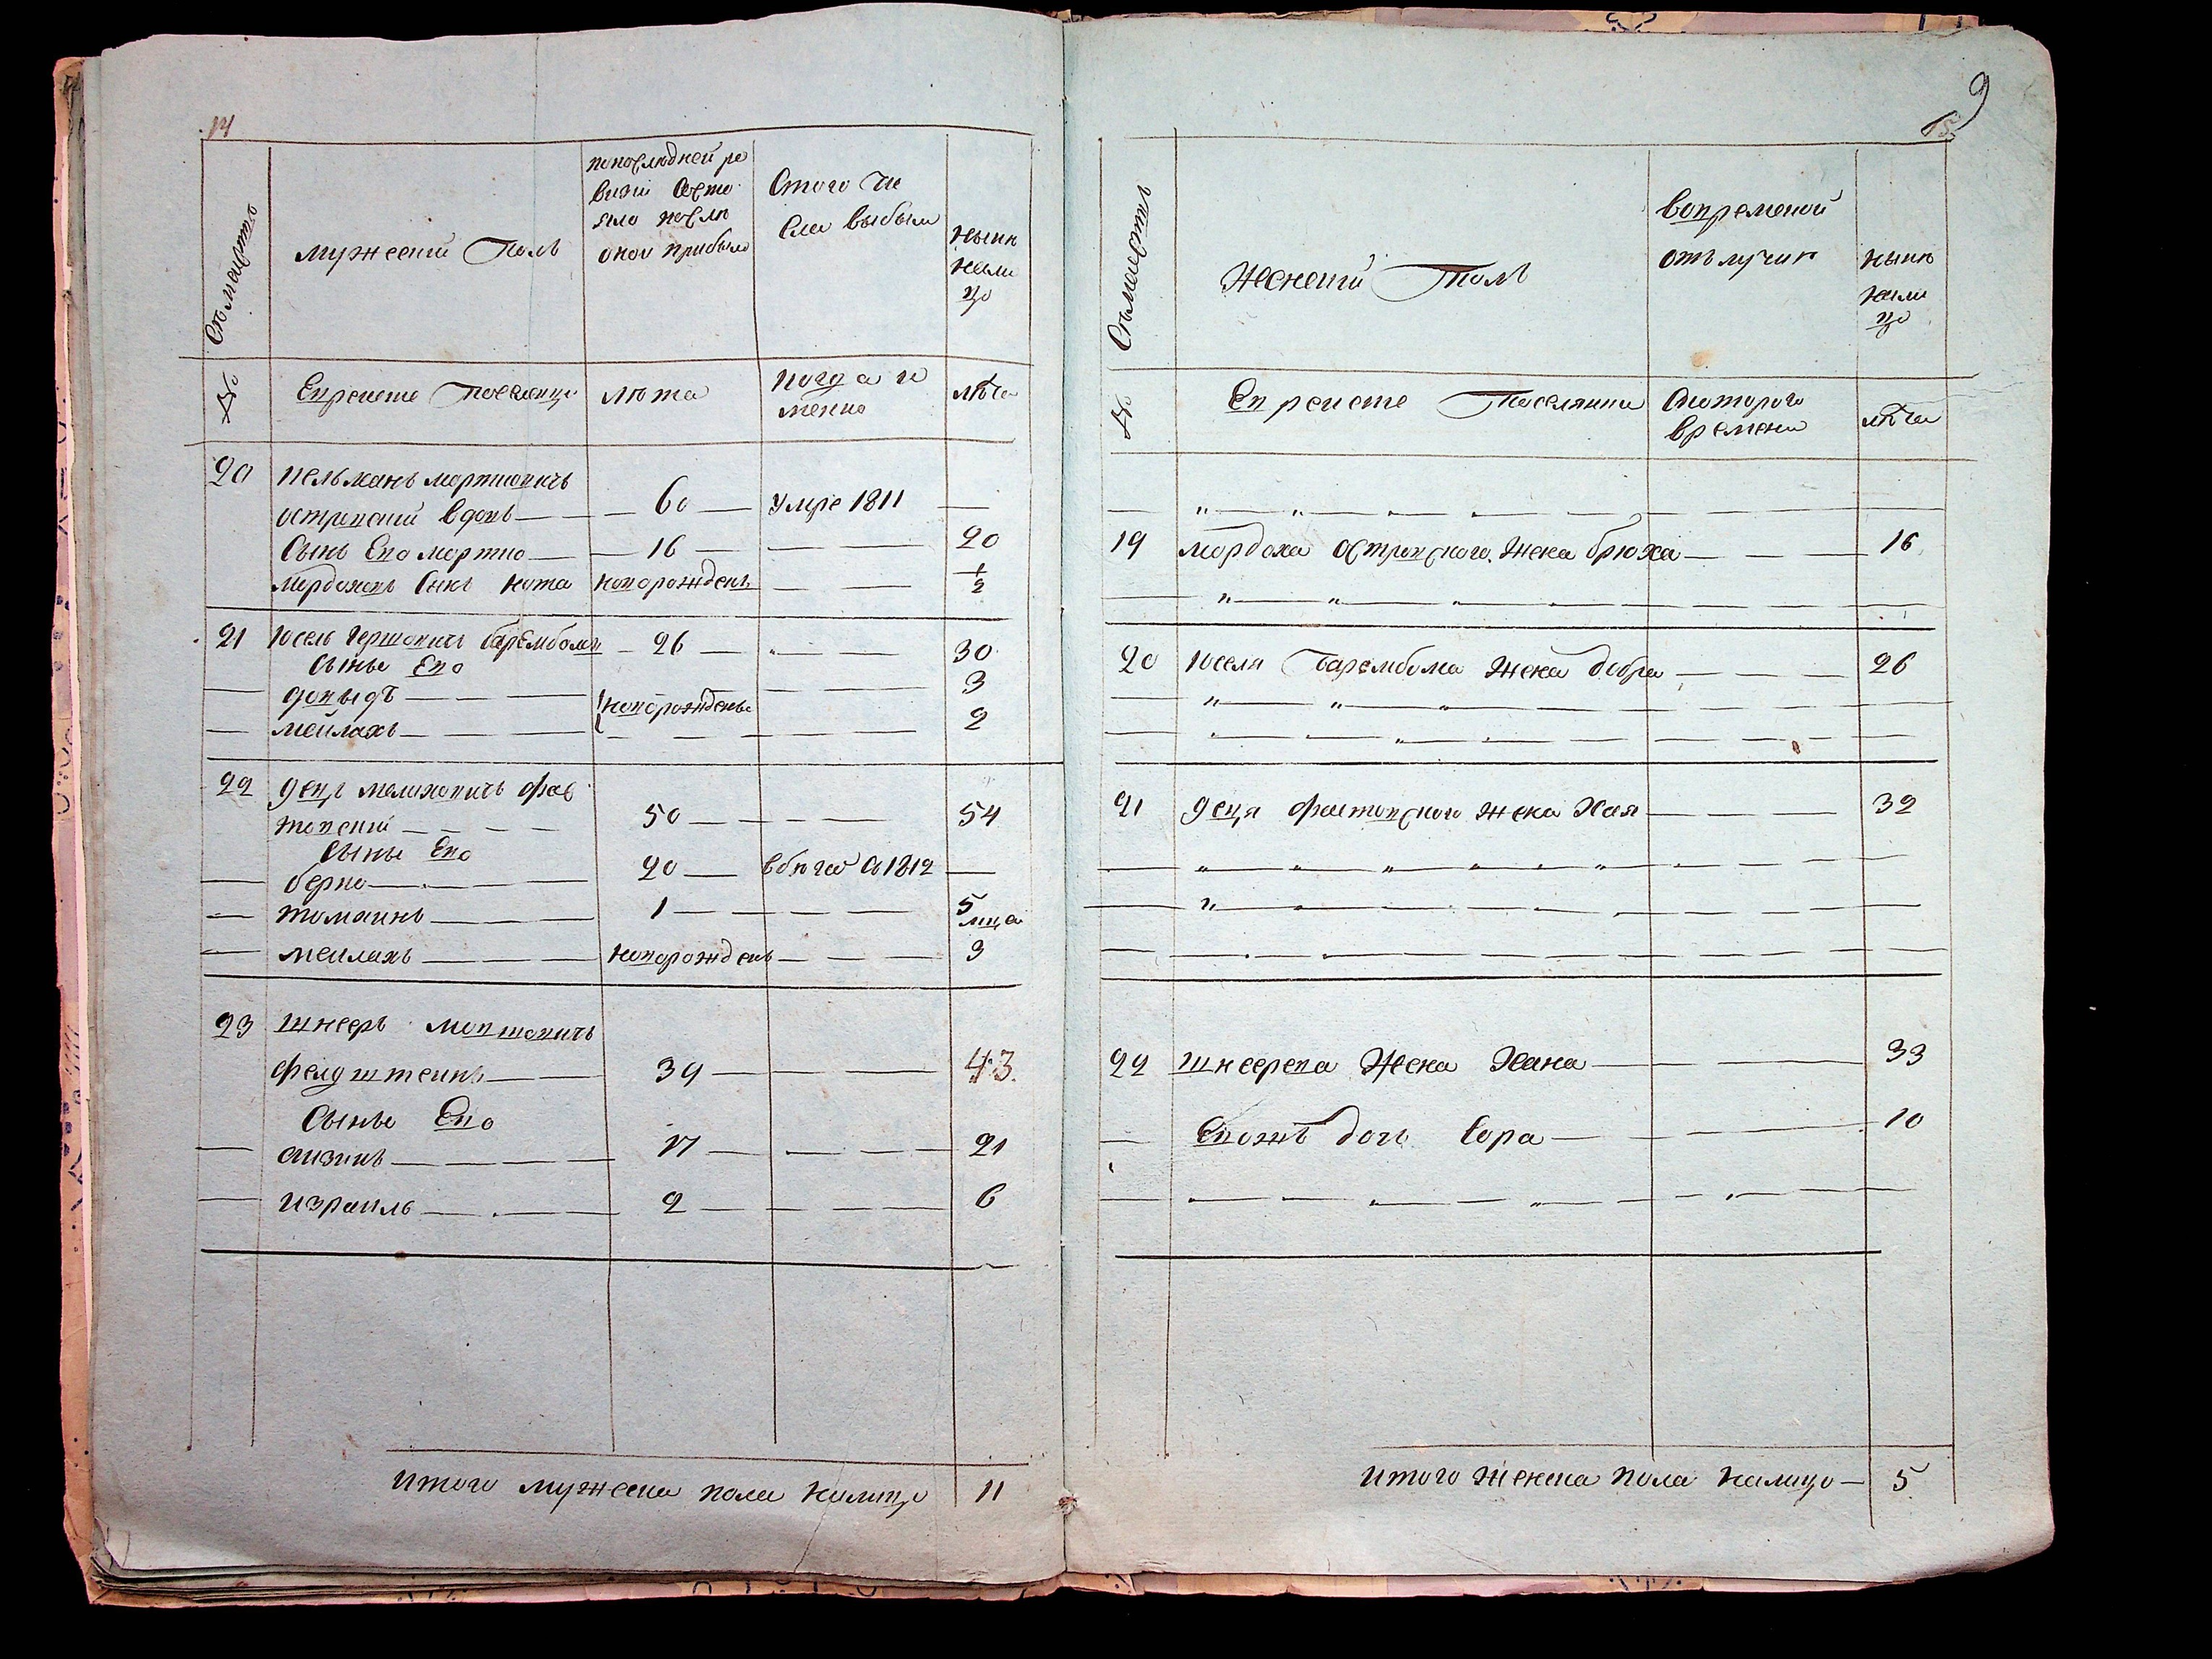 14
Съмействъ
мужеский Полъ
попослюдней ре
визии состо
яло послю
оной прибыло
Стого чи
сла выбыли
нынѣ
нали
цо
№
Еврейские Поселенцы
лѣта
когда и
менно
лѣта
20
Кельманъ мортковичъ
островский вдовъ — 60 — умре 1811 —
Сынъ Ево мортко — 16 — 20
Мордоховъ Сынъ нота новорожденъ — 1/2
21 Юсель Гершовичъ барембомъ — 26 — 30
Сынъе Ево
довыдъ — новорожденъе 3
мейлахъ — 2
22 децъ мелиховичъ фас
товский — 50 — 54
Сынъе Ево
берко — 20 — вбѣгах съ 1812 —
томаинъ — 1 — 5
мца
мейлахъ — новорожденъ — 3
23 шнееръ мовшовичъ
фелдштеинъ — 39 — 43.
Сынъе Ево
аизикъ — 17 — 21
израиль — 2 — 6
итого мужеска пола налицо 11
9
15
Съмействъ
Женский Полъ
вовременой
отълучкѣ
нынѣ
нали
цо
№
Еврейские Поселянки
Скоторого
времени
лѣта
19 мордоха островского Жена брюха — 16
20 Юселя Барембома Жена добра — 26
21 деця фастовского Жена Хая — 32
22 шнеерева Жена Хана — 33
Евожъ дочь Сора — 10
итого Женска пола налицо — 5